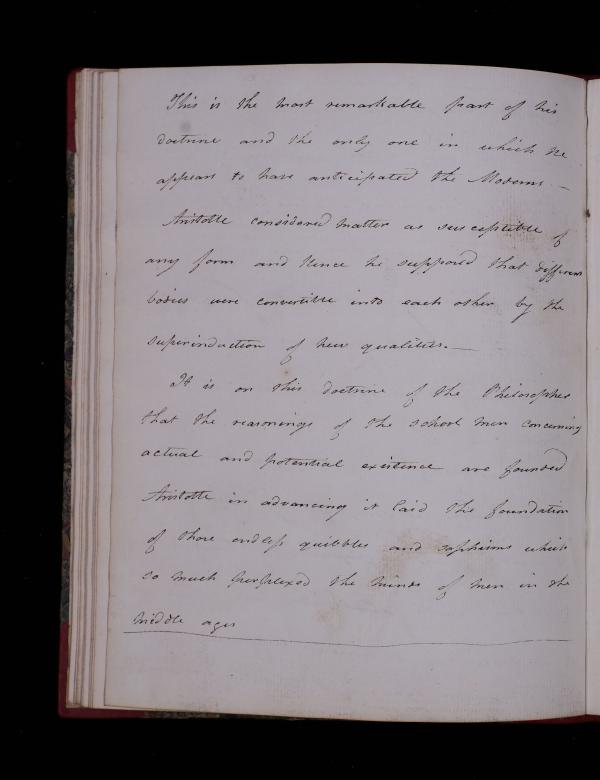 This is the most remarkable part of his
doctrine and the only one in which he
appears to have anticipated the Moderns. —
Aristotle considered matter as susceptible of
any form and hence he supposed that different
bodies were convertible into each other by the
superinduction of new qualities. —
It is on this doctrine of the Philosopher
that the reasonings of the school men concerning
actual and potential existence are founded
Aristotle in advancing it laid the foundation
of those endless quibbles and sophisms which
so much perplexed the minds of men in the
middle ages